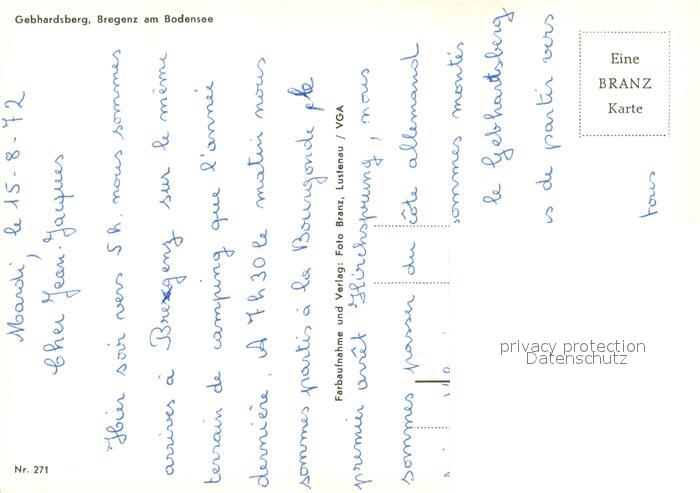 Gebhardsberg, Bregenz am Bodensee
Eine
BRANZ
Karte
Mardi, le 15-8-72
Cher Jean-Jacques
Hier soir vers 5h. nous sommes
arrivés à Bregenz sur le même
terrain de camping que l'année
dernière. A 7h30 le matin nous
sommes partis à la Bourgonde
premier arrêt Hirchsprung, nous
sommes passer du côte allemand
sommes montés
le Gebhartsberg
s de partir vers
tous
Farbaufnahme und Verlag: Foto Branz, Lustenau / VGA
Nr. 271
privacy protection
Datenschutz